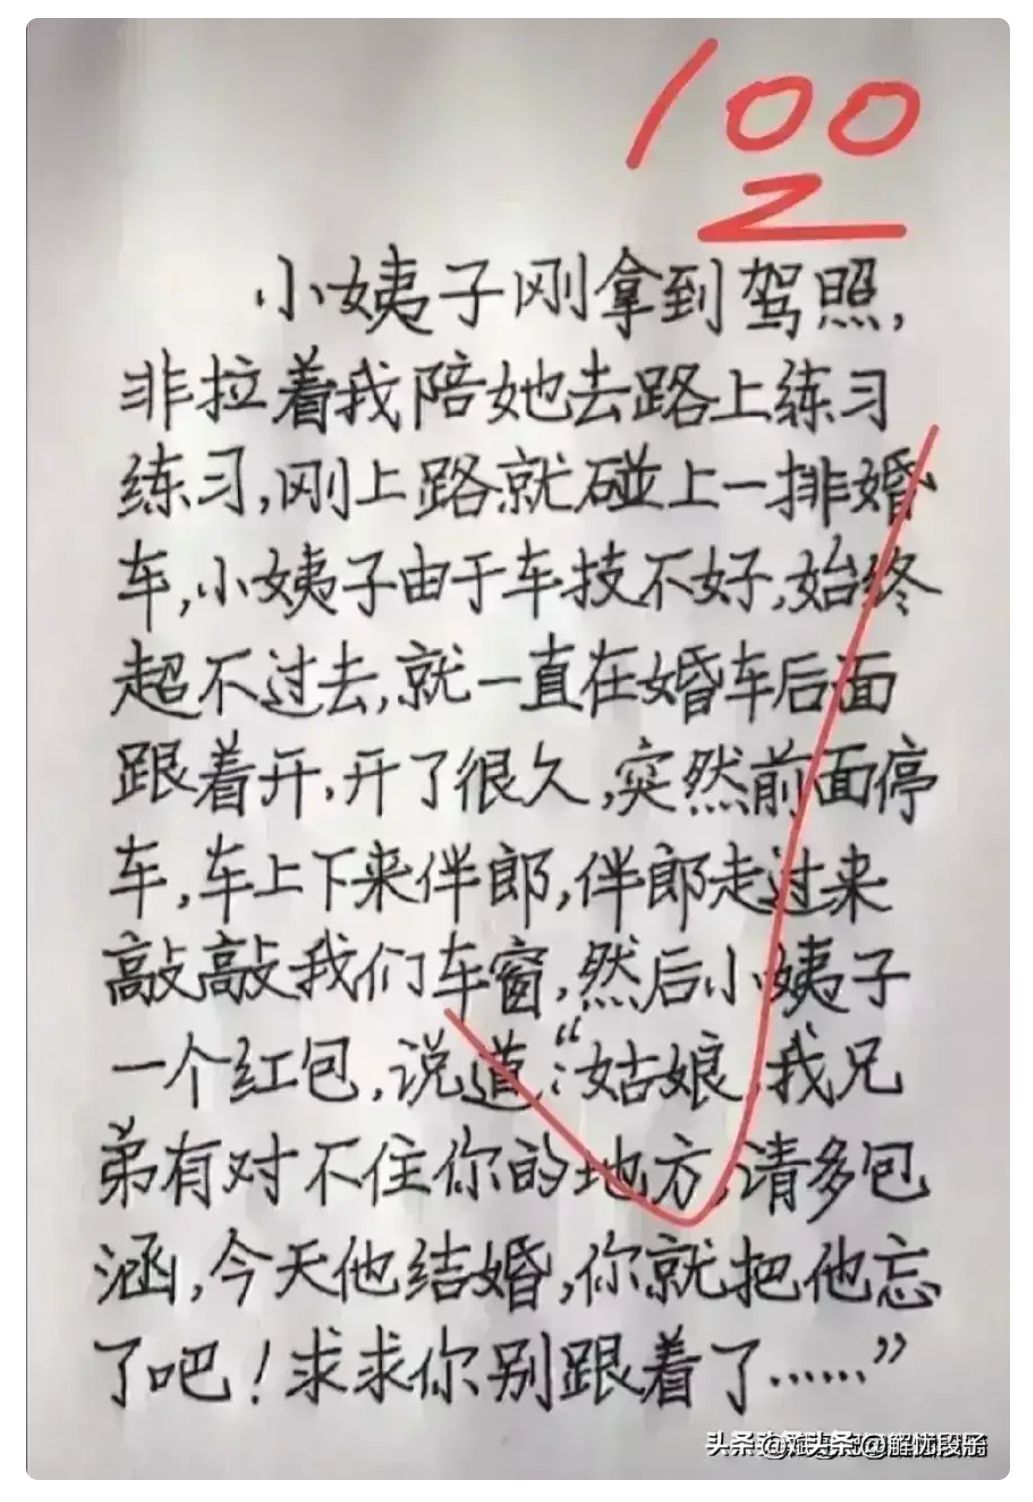 100
小姨子刚拿到驾照,
非拉着我陪她去路上练习
练习,刚上路就碰上一排婚
车,小姨子由于车技不好,始终
超不过去,就一直在婚车后面
跟着开,开了很久,突然前面停
车,车上下来伴郎,伴郎走过来
敲敲我们车窗,然后小姨子
一个红包,说道:“姑娘,我兄
弟有对不住你的地方,请多包
涵,今天他结婚,你就把他忘
了吧!求求你别跟着了……”
头条 @解忧段子